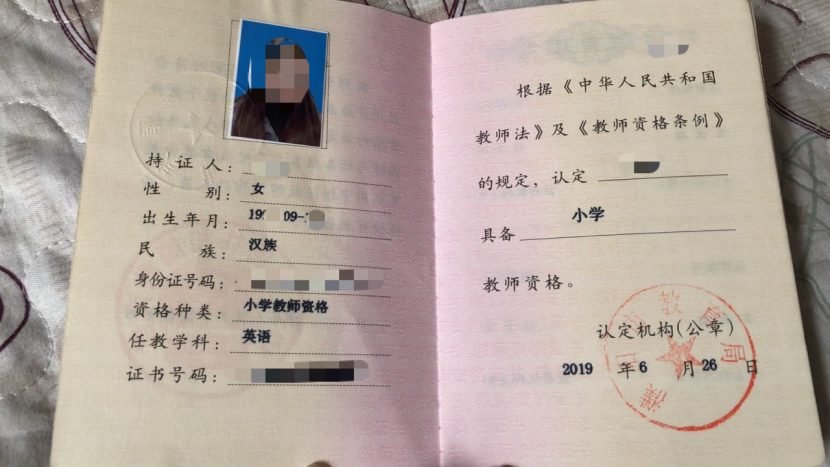 持证人：
性别：女
出生年月：19 09-
民族：汉族
身份证号码：
资格种类：小学教师资格
任教学科：英语
证书号码：
根据《中华人民共和国
教师法》及《教师资格条例》
的规定，认定
具备 小学
教师资格。
认定机构(公章)
2019 年 6 月 26 日
教育局